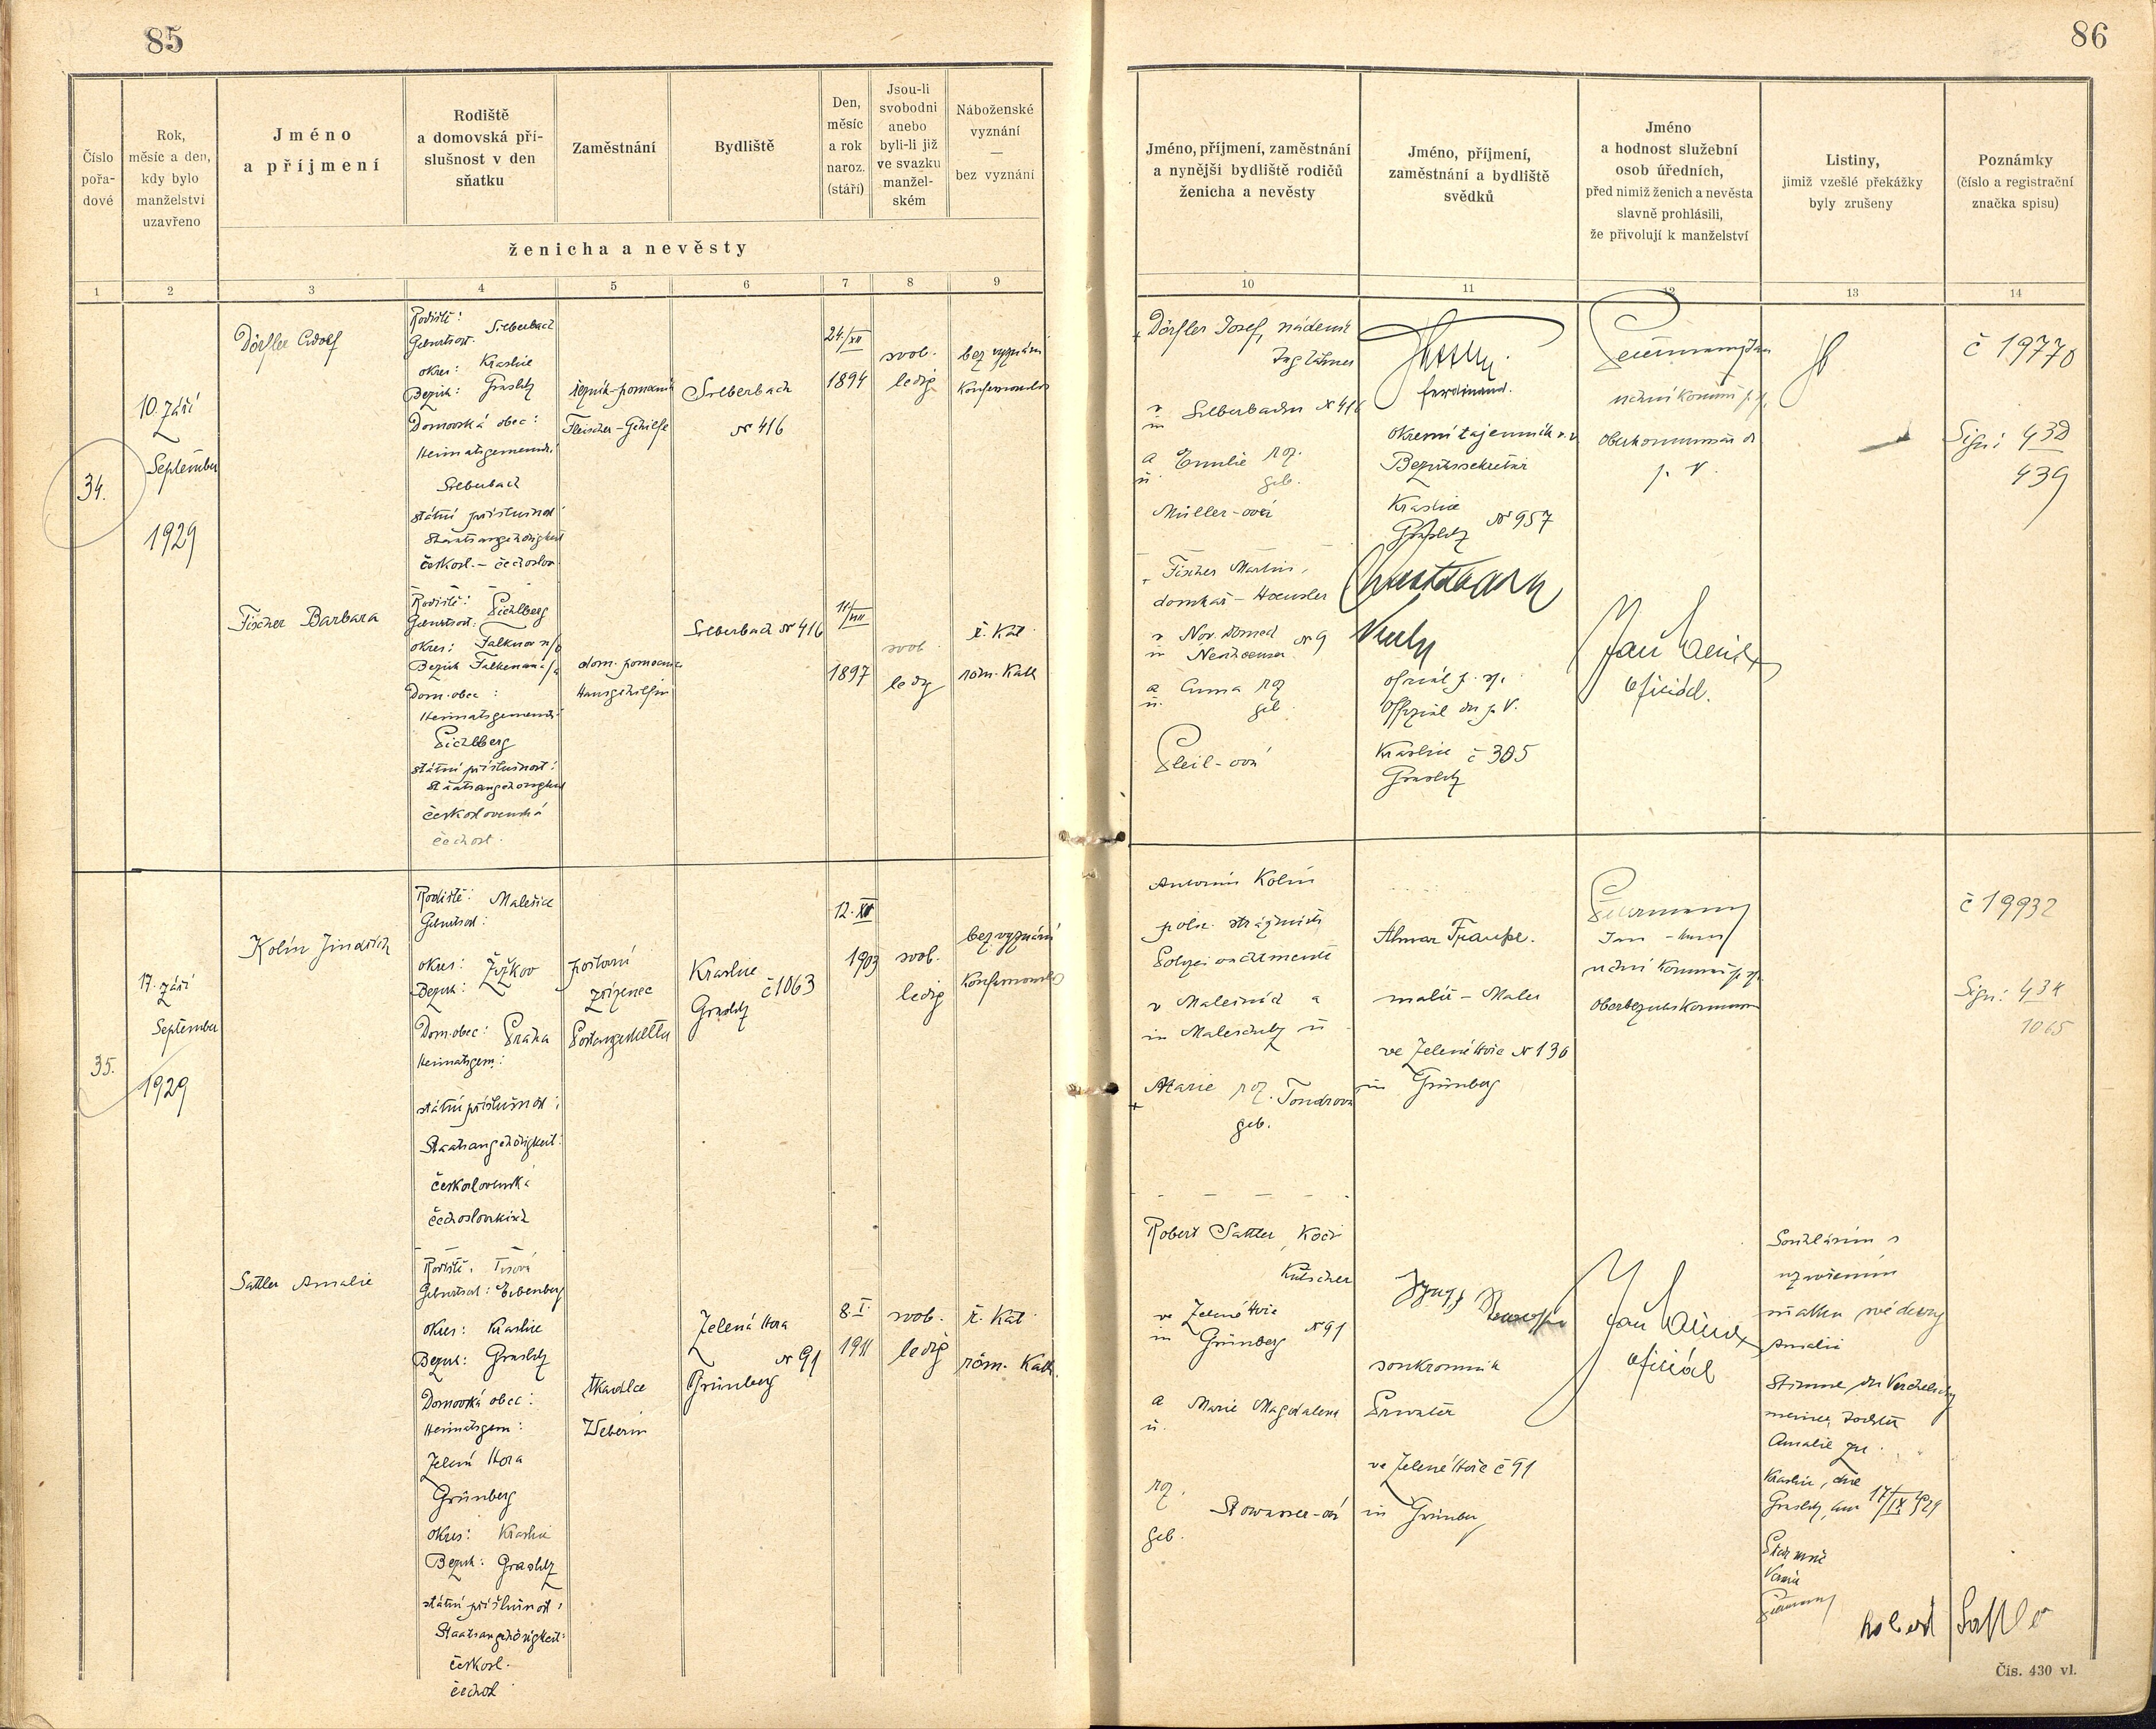 85
Číslo pořa- dové
Rok, měsíc a den, kdy bylo manželství uzavřeno
Jméno a příjmení
Rodiště a domovská pří- slušnost v den sňatku
Zaměstnání
Bydliště
Den, měsíc a rok naroz. (stáří)
Jsou-li svobodni anebo byli-li již ve svazku manžel- ském
Náboženské vyznání — bez vyznání
ženicha a nevěsty
1 2 3 4 5 6 7 8 9
34.
10. září
September
1929
Dörfler Adolf
Rodiště: Silberbach
Geburtsort:
okres: Kraslice
Bezirk: Graslitz
Domovská obec:
Heimatsgemeinde:
Silberbach
státní příslušnost
Staatsangehörigkeit
českosl. - čechoslov.
řezník-pomocník
Fleischer-Gehilfe
Silberbach
№ 416
24./XII
1894
svob.
ledig
bez vyznání
Konfessionslos
Fischer Barbara
Rodiště: Pichlberg
Geburtsort:
okres: Falknov n/O
Bezirk Falkenau a/E
Dom. obec:
Heimatsgemeinde:
Pichlberg
státní příslušnost:
Staatsangehörigkeit
československá
čechosl.
dom. pomocnice
Hausgehilfin
Silberbach № 416
1897
svob.
ledig
ř. Kat.
röm. Kath
35.
17. září
September
1929
Kolín Jindřich
Rodiště: Malešice
Geburtsort:
okres: Žižkov
Bezirk:
Dom. obec: Praha
Heimatsgem.:
státní příslušnost:
Staatsangehörigkeit:
československá
čechoslovakisch
poštovní
zřízenec
Postangestellter
Kraslice č 1063
Graslitz
12. XII
1903
svob.
ledig
bez vyznání
Konfessionslos
Sattler Amalie
Rodiště: Tisová
Geburtsort: Eibenberg
okres: Kraslice
Bezirk: Graslitz
Domovská obec:
Heimatsgem:
Zelená Hora
Grünberg
okres: Kraslice
Bezirk: Graslitz
státní příslušnost:
Staatsangehörigkeit:
českosl.
čechosl
tkadlce
Weberin
Zelená Hora
№ 91
Grünberg
8. I.
1911
svob.
ledig
ř. Kat.
röm. Kath.
86
Jméno, příjmení, zaměstnání a nynější bydliště rodičů ženicha a nevěsty
Jméno, příjmení, zaměstnání a bydliště svědků
Jméno a hodnost služební osob úředních, před nimiž ženich a nevěsta slavně prohlásili, že přivolují k manželství
Listiny, jimiž vzešlé překážky byly zrušeny
Poznámky (číslo a registrační značka spisu)
10 11 12 13 14
Dörfler Josef, nádeník
Taglöhner
v
in Silberbachu № 416
a Emilie roz.
u. geb.
Müller-ová
Ferdinand.
okresní tajemník v.v.
Bezirkssekretär
Kraslice
Graslitz № 957
Oberkommissär d.
p. V.
č 19770
Sign: 4 3D
439
Fischer Martin,
domkář - Häusler
v Nov. Domech № 9
in Neuhäuser
a Anna roz
u. geb.
Peil-ová
oficiál p. s.
Offizial der p. V.
Kraslice č 305
Graslitz
oficiál.
Antonín Kolín
polic. strážník
v Malešicích a
in Maleschitz u
Marie roz. Tondrová
geb.
malíř - Maler
ve Zelené Hoře № 136
in Grünberg
č 19932
1065
Robert Sattler, Kočí
Kutscher
ve Zelené Hoře
in Grünberg № 91
a
u. Marie Magdalena
roz.
geb. Stowasser-ová
soukromník
Privatier
ve Zelené Hoře č 91
in Grünberg
oficiál
Souhlasím s
uzavřením
sňatku své dcery
Amalie
Stimme der Verehelichung
meiner Tochter
Amalie zu.
Kraslice, dne
Graslitz, am 17/IX 1929
Robert Sattler
Čís. 430 vl.